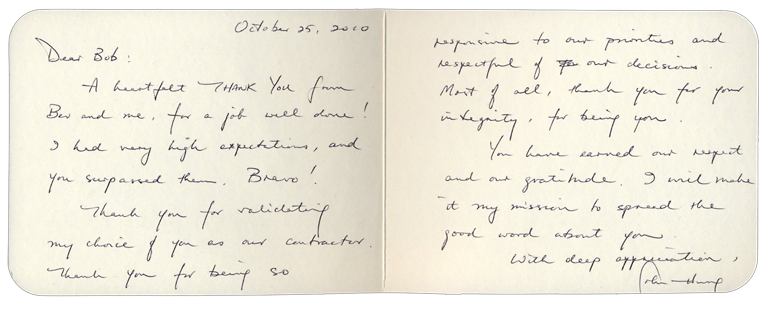 October 25, 2010
Dear Bob:
A heartfelt THANK YOU from
Bev and me, for a job well done!
I had very high expectations, and
you surpassed them. Bravo!
Thank you for validating
my choice of you as our contractor.
Thank you for being so
responsive to our priorities and
respectful of our decisions.
Most of all, thank you for your
integrity, for being you.
You have earned our respect
and our gratitude. I will make
it my mission to spread the
good word about you.
With deep appreciation,
John